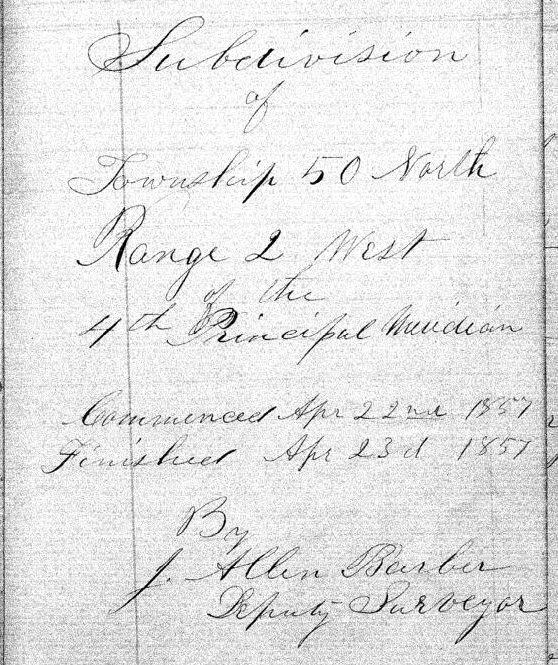 Subdivision
of
Township 50 North
Range 2 West
of the
4th Principal Meridian
Commenced Apr 22nd 1857
Finished Apr 23d 1857
By
J. Allen Barber
Deputy Surveyor